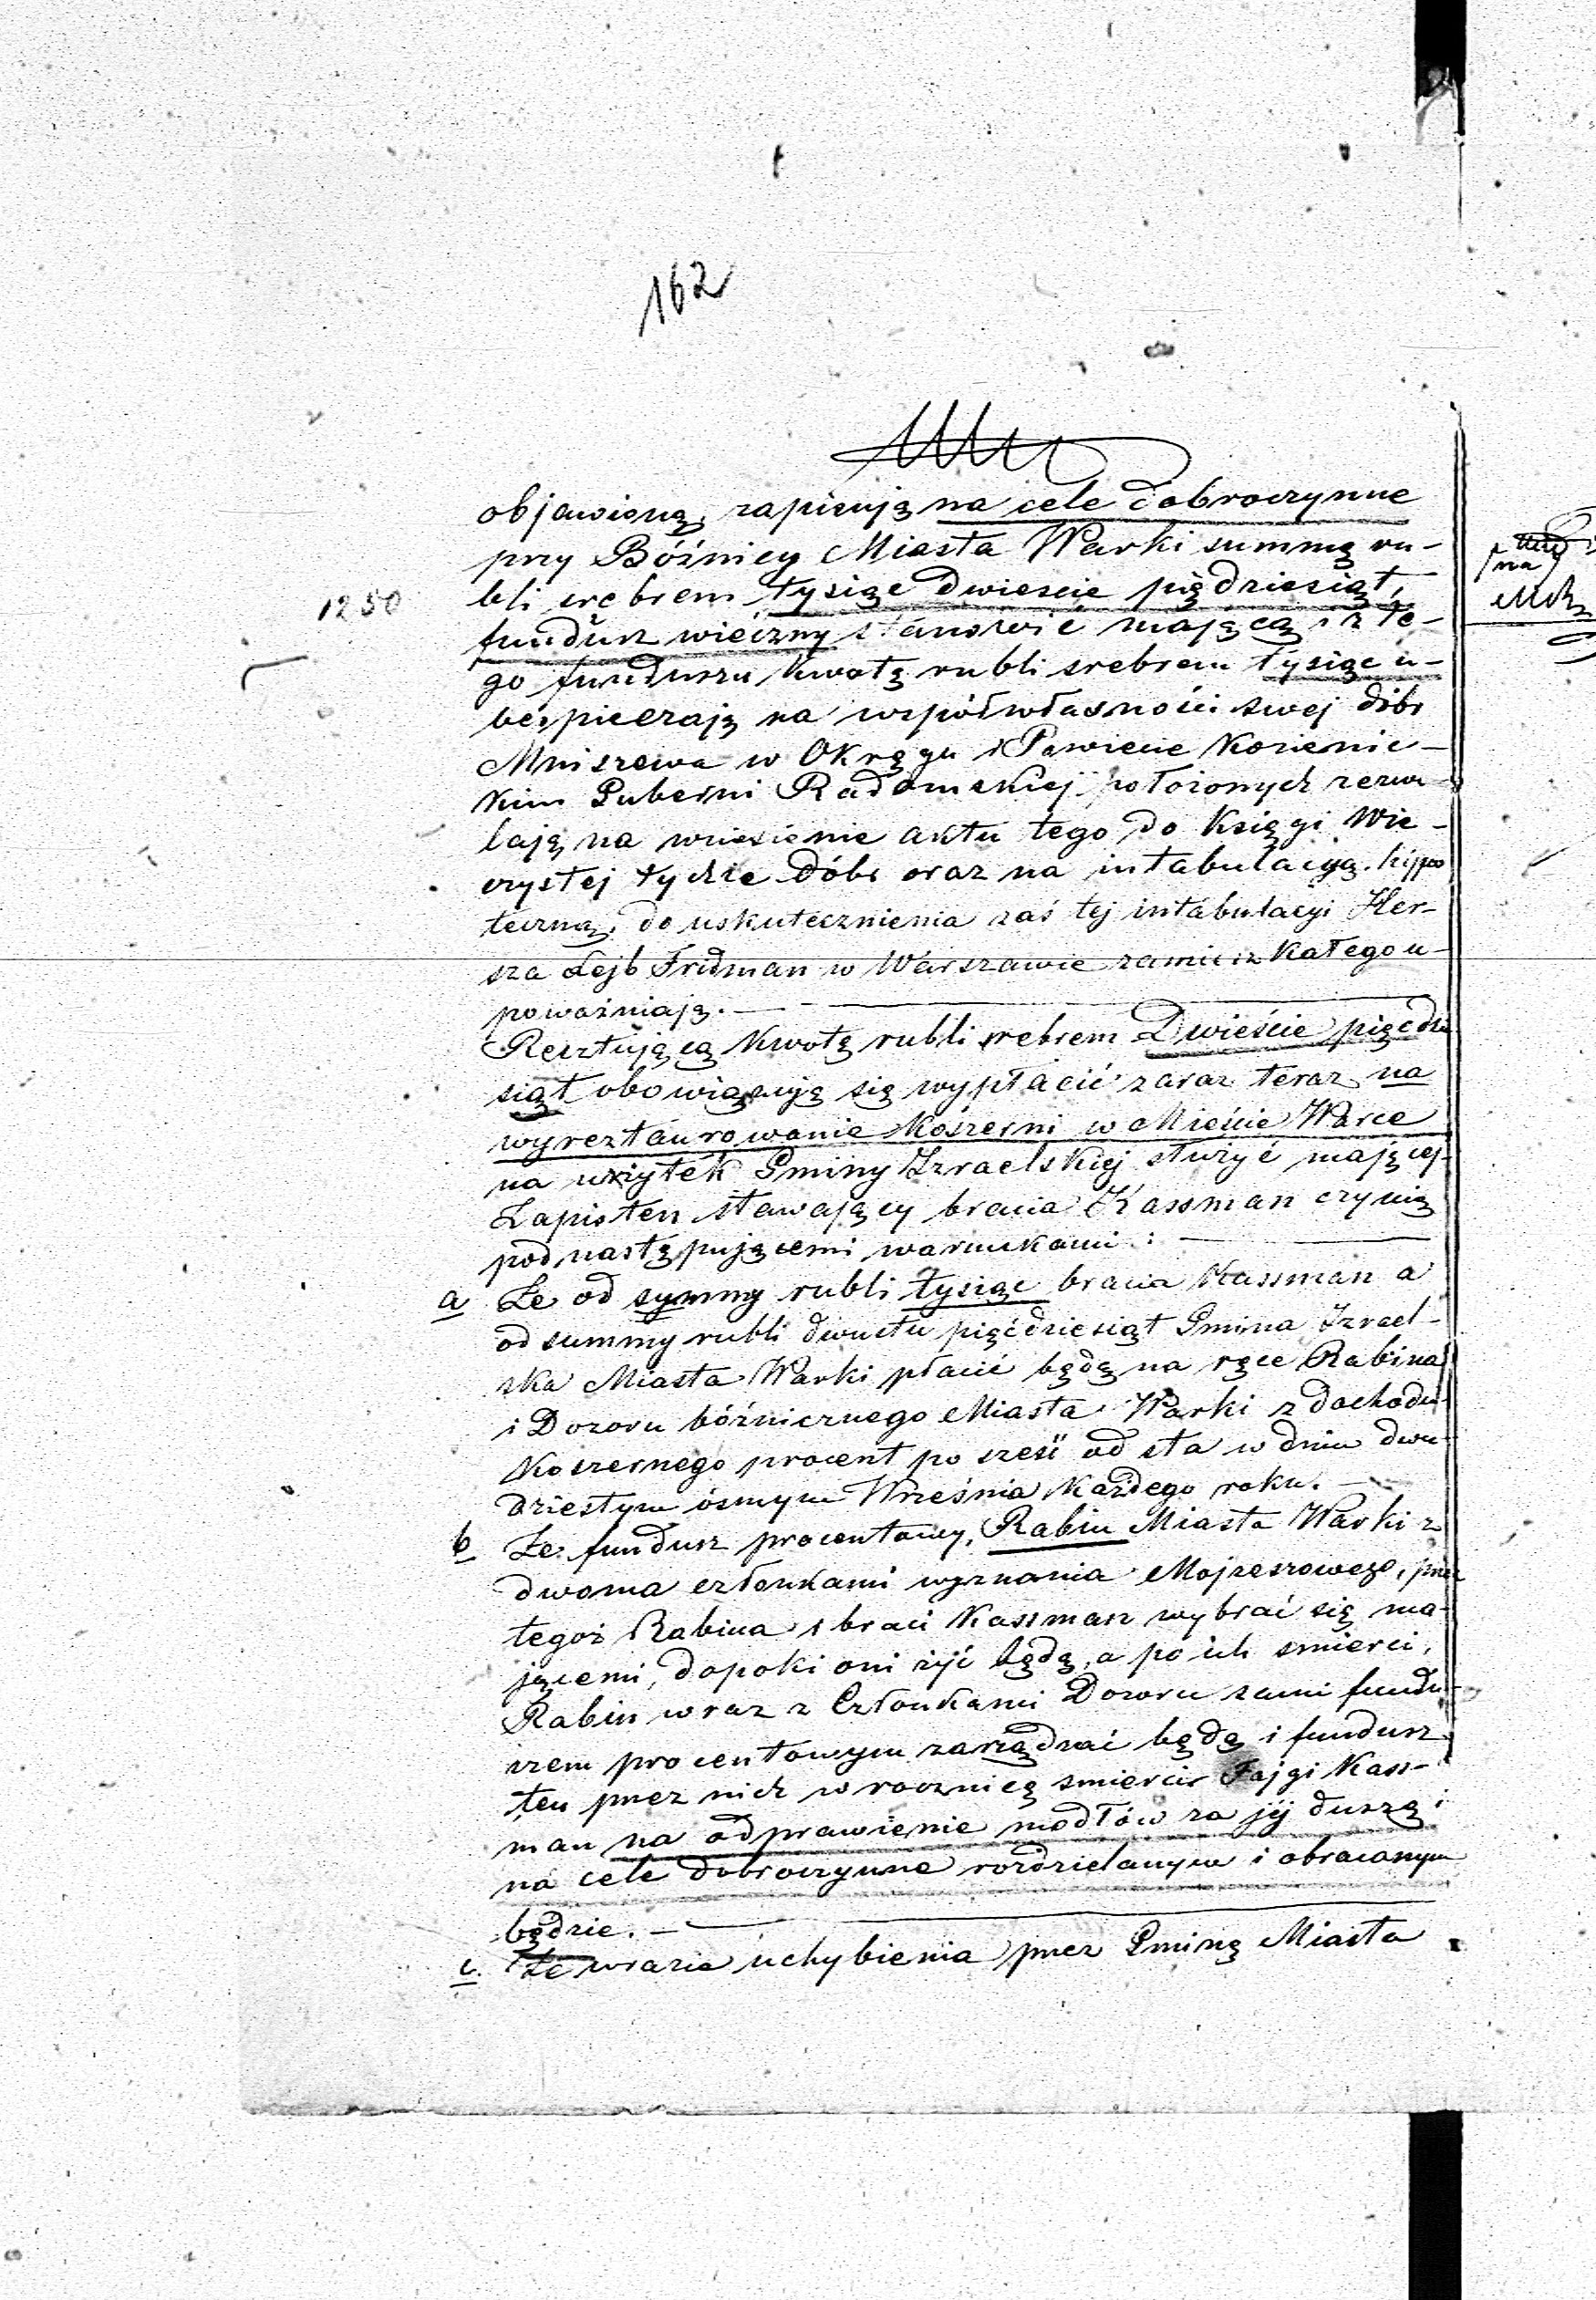 162
objawioną, zapisują na cele dobroczynne
przy Bóźnicy Miasta Warki summę ru-
1250
bli srebrem tysiąc dwieście piędziesiąt,
fundusz wieczny stanowić mającą i z te-
go funduszu kwotę rubli srebrem tysiąc u-
bezpieczają na współwłasności swej dóbr
Mniszewa w Okręgu i Powiecie Kozienic-
kim Guberni Radomskiej położonych zezwa-
lają na wniesienie aktu tego do Księgi Wie-
czystej tychże dóbr oraz na intabulacyą hypo
teczną, do uskutecznienia zaś tej intabulacyi Her-
sza Lejb Fridman w Warszawie zamieszkałego u-
poważniają.—
Resztującą kwotę rubli srebrem Dwieście pięćdzie
siąt obowiązują się wypłacić zaraz teraz na
wyresztaurowanie Koszerni w Mieście Warce
na użytek Gminy Izraelskiej służyć mającej.
Zapis ten stawający bracia Kassman czynią
pod następującemi warunkami:—
a Że od summy rubli tysiąc bracia Kassman a
od summy rubli dwustu pięćdziesiąt Gmina Izrael-
ska Miasta Warki płacić będą na ręce Rabina
i Dozoru bóźnicznego Miasta Warki z dochodu
Koszernego procent po sześć od sta w dniu dwu-
dziestym ósmym Września każdego roku.—
b Że fundusz procentowy, Rabin Miasta Warki z
dwoma członkami wyznania Mojżeszowego, przez
tegoż Rabina i braci Kassman wybrać się ma-
jącemi, dopoki oni żyć będą, a po ich smierci,
Rabin wraz z Członkami Dozoru sami fundu-
szem procentowym zarządzać będą i fundusz
ten przez nich w rocznicę smierci Fajgi Kass-
man na odprawienie modłów za jéj duszę i
na cele dobroczynne rozdzielanym i obracanym
będzie.—
c. Że w razie uchybienia przez Gminę Miasta